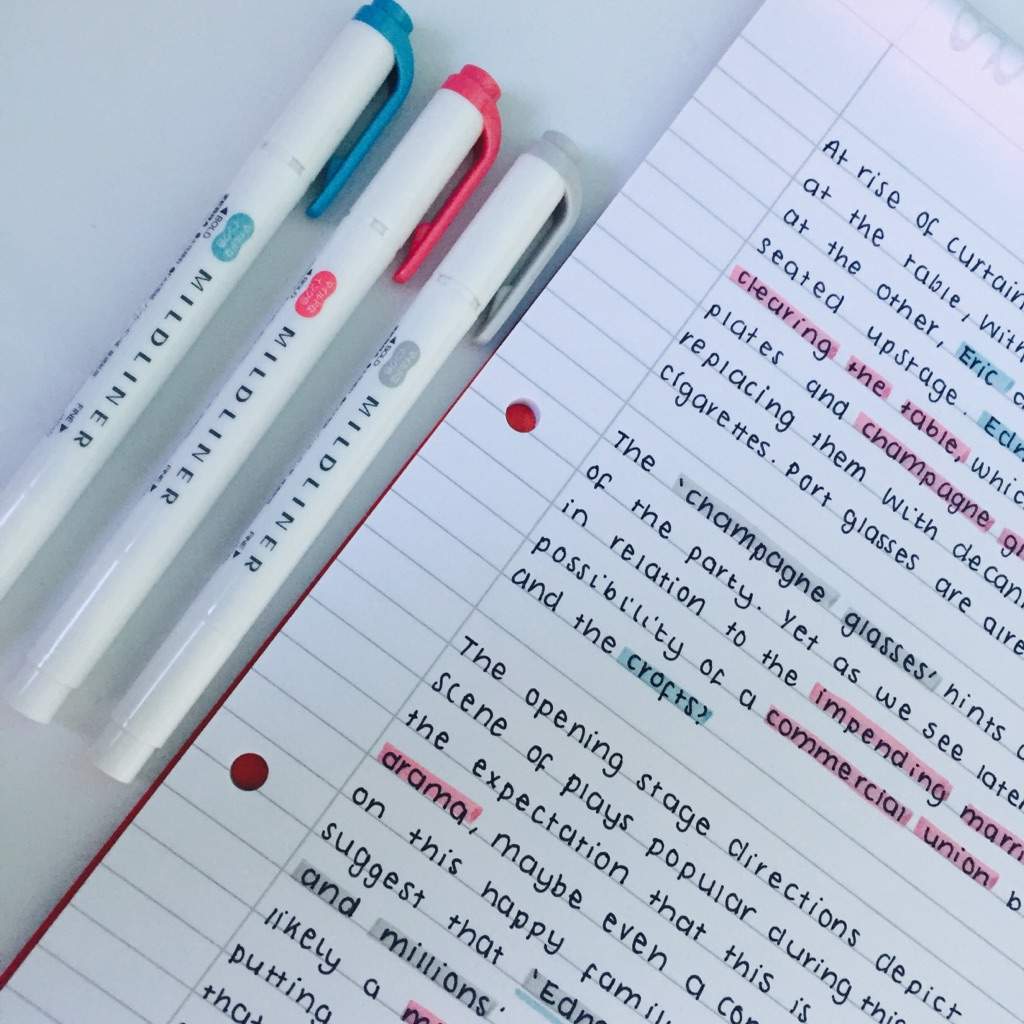 MILDLINER
BOLD
FINE
MILDLINER
FINE
MILDLINER
BOLD
FINE
At rise of curtain
at the table, with
at the other, Eric
seated upstage. Edn
clearing the table, whic
plates and champagne gl
replacing them with decan
cigarettes. Port glasses are alre
The 'champagne glasses' hints
of the party. Yet as we see later
in relation to the impending marri
possibility of a commercial union b
and the crofts?
The opening stage directions depict
scene of plays popular during this
the expectation that this is
arama, maybe even a com
on this happy famil
suggest that 'Edna
and millions'
likely a
putting
that